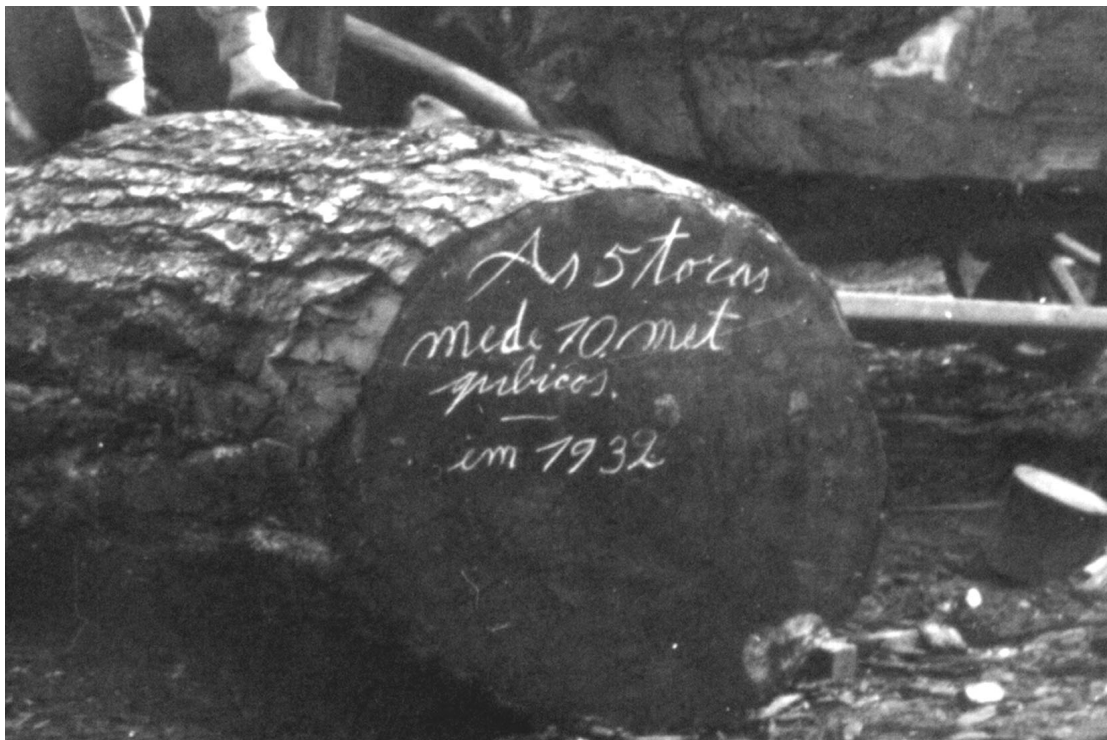 As 5 toras
mede 10 met
qubicos.
em 1932